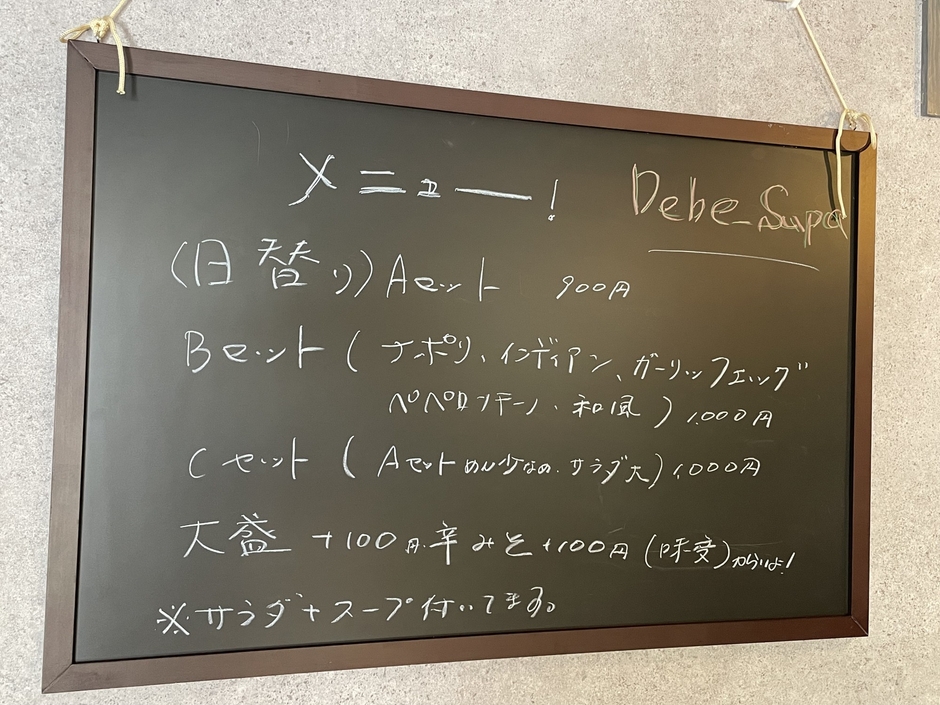 メニュー!
Debe_Supa
(日替り)Aセット 900円
Bセット(ナポリ、インディアン、ガーリックエッグ
ペペロンチーノ、和風)1,000円
Cセット(Aセットめん少なめ、サラダ大)1,000円
大盛 +100円、辛みそ+100円(味変)からいよ!
※サラダ+スープ付いてます。